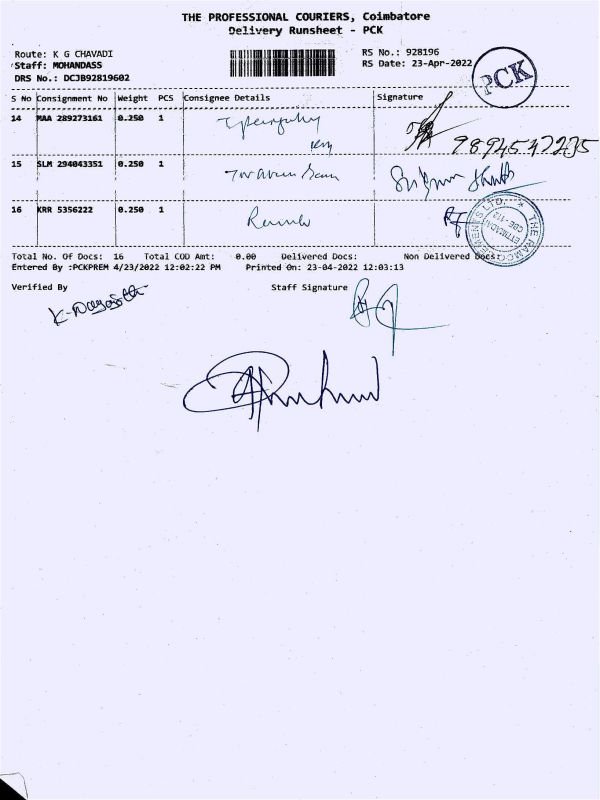 THE PROFESSIONAL COURIERS, Coimbatore
Delivery Runsheet - PCK
Route: K G CHAVADI RS No.: 928196
Staff: MOHANDASS RS Date: 23-Apr-2022
DRS No.: DCJB92819602
PCK
S No Consignment No Weight PCS Consignee Details Signature
14 MAA 289273161 0.250 1
9894547205
15 SLM 294043351 0.250 1
16 KRR 5356222 0.250 1
Total No. Of Docs: 16 Total COD Amt: 0.00 Delivered Docs: Non Delivered Docs:
Entered By :PCKPREM 4/23/2022 12:02:22 PM Printed On: 23-04-2022 12:03:13
Verified By Staff Signature